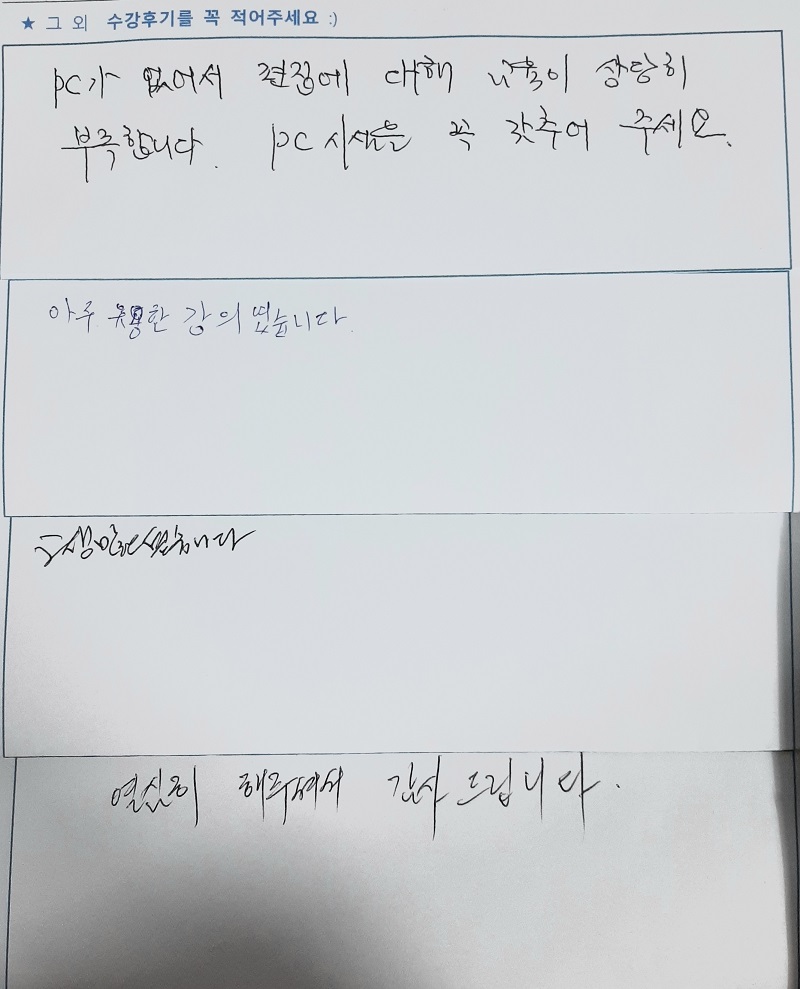 ★ 그 외 수강후기를 꼭 적어주세요 :)
PC가 없어서 편집에 대해 내용이 상당히
부족합니다. PC 시설을 꼭 갖추어 주세요.
아주 유용한 강의 였습니다.
수고 많으셨습니다
열심히 해주셔서 감사 드립니다.